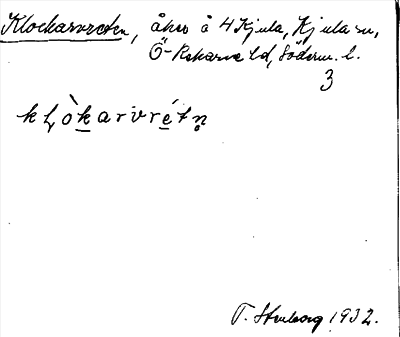 Klockarvreten, åker å 4 Kjula, Kjula sn,
Ö-Rekarne hd, Söderm. l.
3
kl̥ òk̲arvré̲tn̥
T. Stenborg 1932.